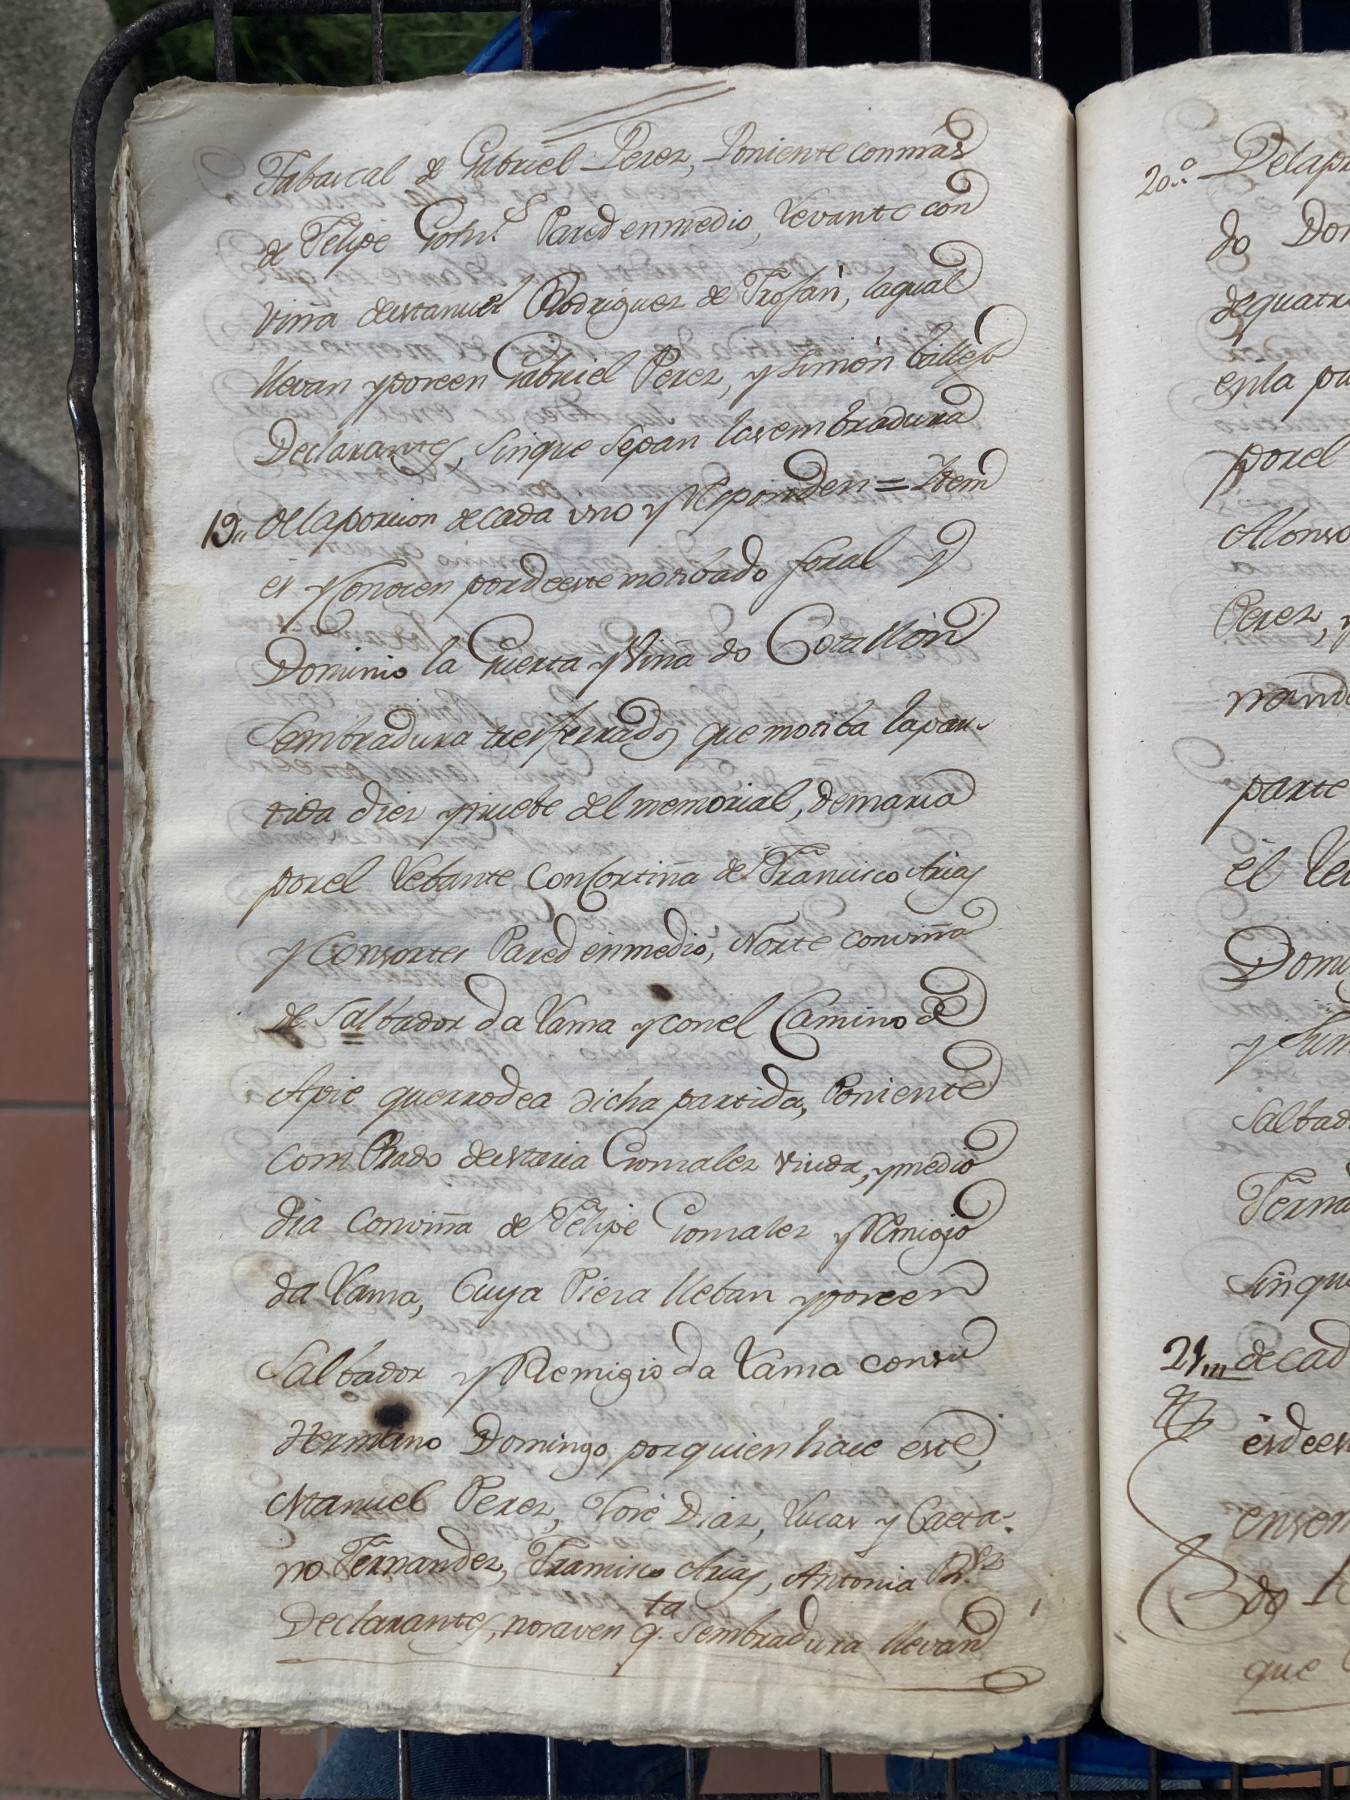 Tabarcal de Gabriel Perez, Poniente con mas
de Felipe Gonz.s Pared enmedio, Levante con
viña de Manuel Rodriguez de Trofan, laqual
llevan yposeen Gabriel Perez, y Simón Vallejo
Declarantes, sinque sepan lasembradura
19., de laporcion decada uno y Responden = Item
es Y Conocen pordeeste mosteado foral y
Dominio la Huerta y Viña do Cotallón
Sembradura tresferrados que motiba lapar-
tida diez ynuebe del memorial, demarca
porel Lebante Consortiña de Francisco Arias
y Consortes Pared enmedio, Norte conviña
de Salbador da Vama yconel Camino de
Apie querrodea dicha partida, Poniente
Com Prado deMaria Gonzalez viuda, ymedio
dia Conviña de Felipe Gonzalez y Remigio
da Vama, Cuya Pieza lleban yposeen
Salbador y Remigio da Vama consu
Hermano Domingo, porquien hace este,
Manuel Perez, Jose Diaz, Lucas y Caeta-
no Fernandez, Francisco Arias, Antonia Rz.
Declarantes, nosaven q.ta Sembradura llevan
20.º Delapr
do Don
dequatr
enla pa
porel
Alonso
Perez, y
nand
parte
él Le
Domi
y Sim
Salbad
Ferna
Sinqu
21 decad
esdees
ensem
do
que